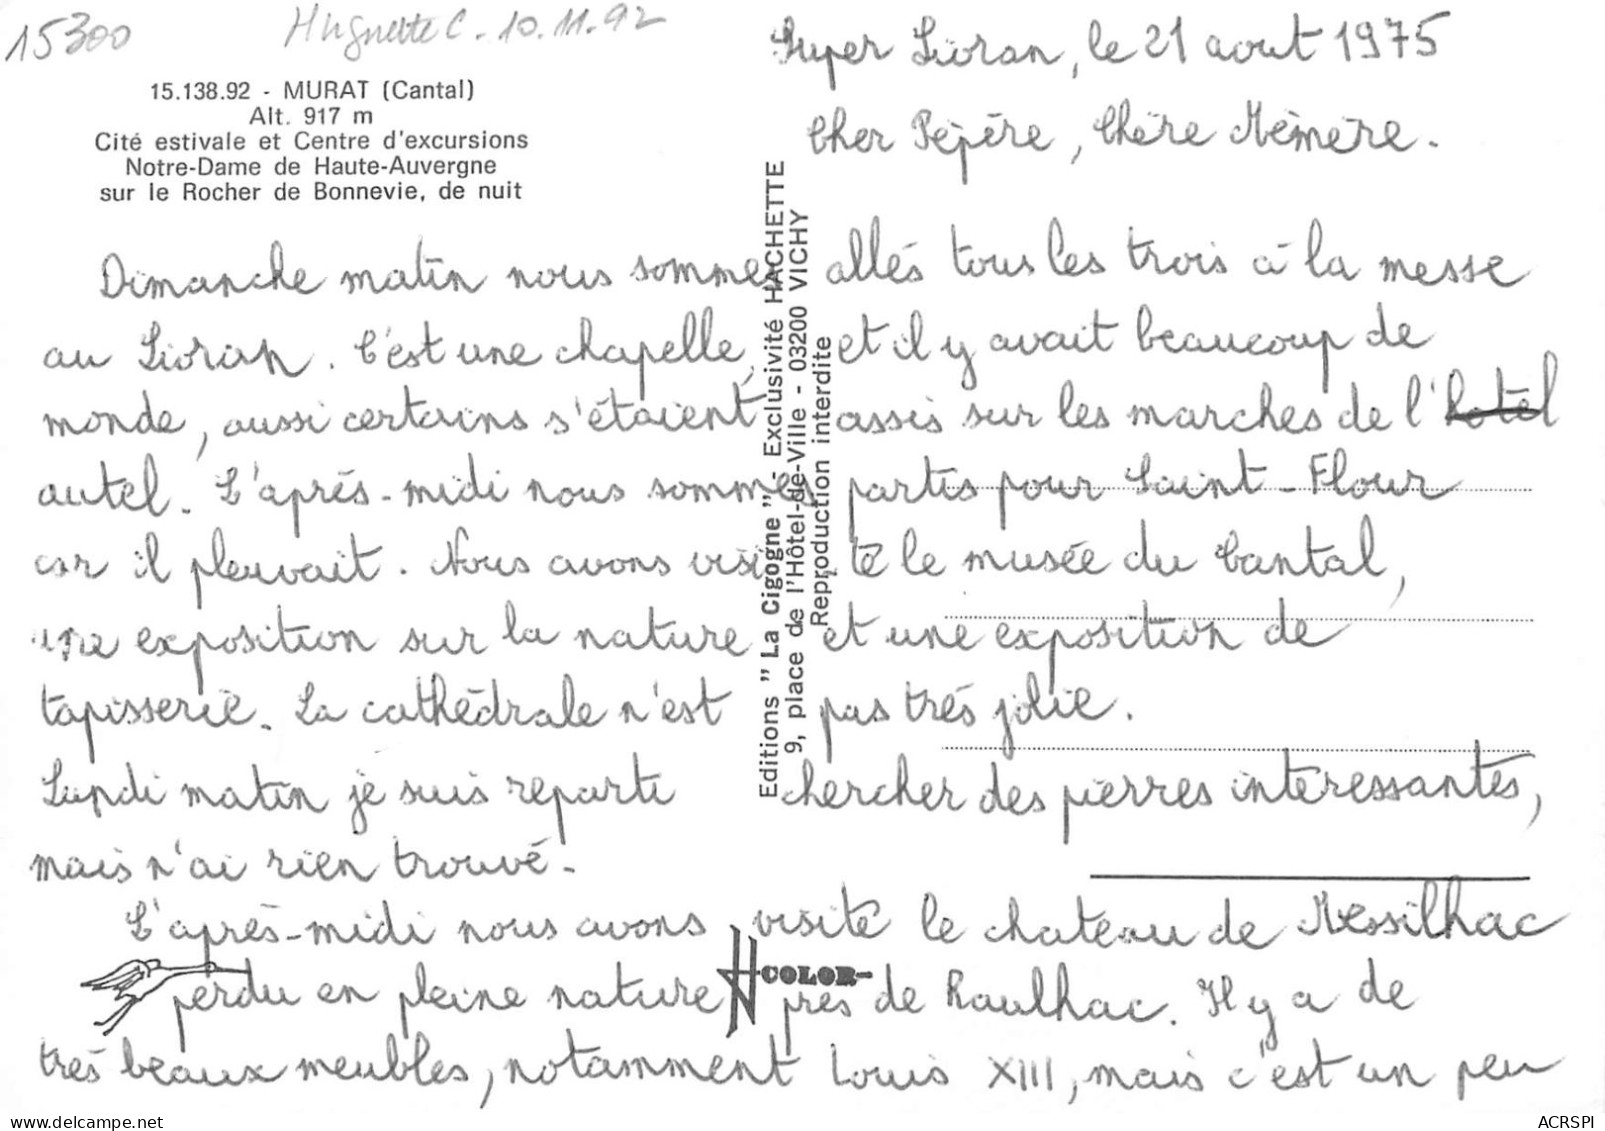 15300
Huguette C. 10.11.92
15.138.92 - MURAT (Cantal)
Alt. 917 m
Cité estivale et Centre d'excursions
Notre-Dame de Haute-Auvergne
sur le Rocher de Bonnevie, de nuit
Super Lioran, le 21 aout 1975
Cher Pépère, Chère Mémère.
Dimanche matin nous sommes allés tous les trois à la messe
au Lioran. C'est une chapelle, et il y avait beaucoup de
monde, aussi certains s'étaient assis sur les marches de l'hotel
autel. L'après-midi nous sommes partis pour Saint-Flour
car il pleuvait. Nous avons visité le musée du Cantal,
une exposition sur la nature et une exposition de
tapisserie. La cathédrale n'est pas très jolie.
Lundi matin je suis reparti chercher des pierres intéressantes,
mais n'ai rien trouvé.
L'après-midi nous avons visité le chateau de Messilhac
perdu en pleine nature près de Raulhac. Il y a de
très beaux meubles, notamment Louis XIII, mais c'est un peu
Editions "La Cigogne" - Exclusivité HACHETTE
9, place de l'Hôtel-de-Ville - 03200 VICHY
Reproduction interdite
COLOR
ACRSPI